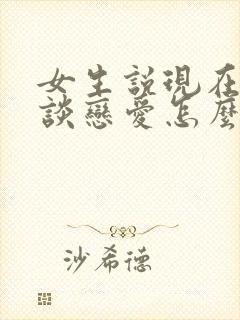 女生說現在
談戀愛怎麼
沙希德